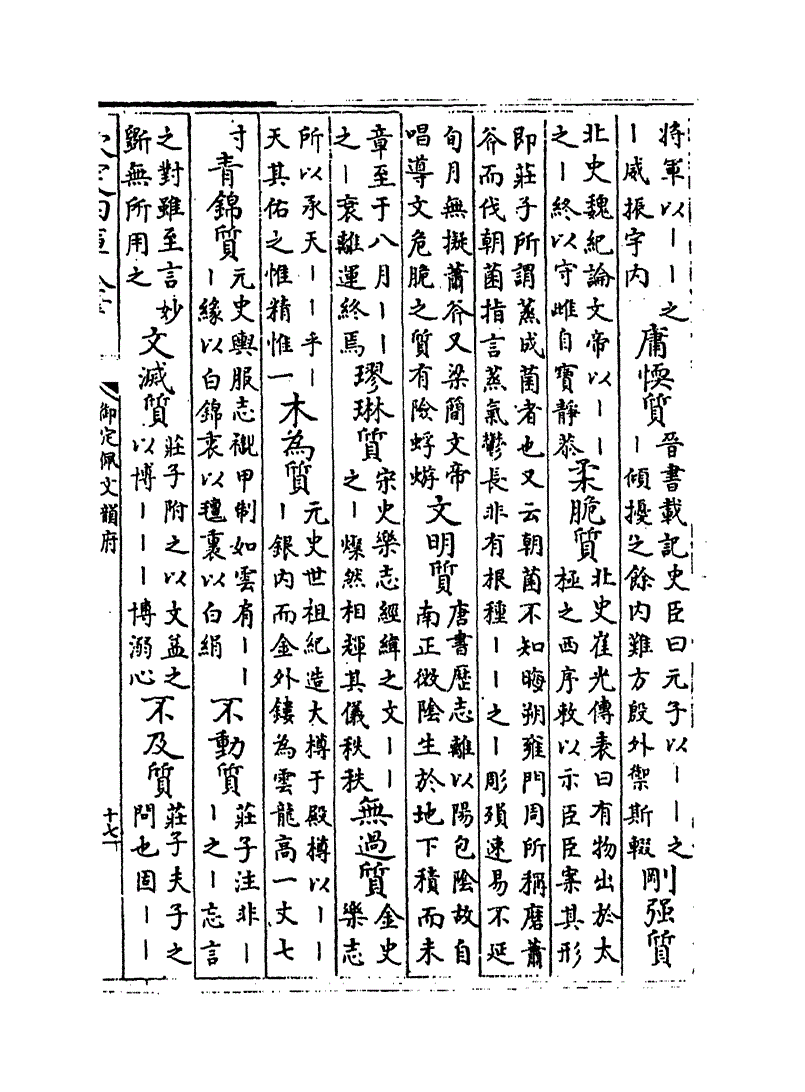 將軍以丨丨之
丨威振宇内
庸愞質
晉書載記史臣曰元子以丨丨之
丨傾擾之餘内難方殷外禦斯輟
剛强質
北史魏紀論文帝以丨丨
之丨終以守雌自寶靜恭
柔脆質
北史崔光傳表曰有物出於太
極之西序敕以示臣臣案其形
即莊子所謂蒸成菌者也又云朝菌不知晦朔雍門周所稱磨蕭
斧而伐朝菌指言蒸氣鬱長非有根種丨丨之丨彫殞速易不延
旬月無擬蕭斧又梁簡文帝
唱導文危脆之質有險蜉蝣
文明質
唐書歷志離以陽包陰故自
南正微陰生於地下積而未
章至于八月丨丨
之丨衰離運終焉
璆琳質
宋史樂志經緯之文丨丨
之丨燦然相輝其儀秩秩
無過質
金史
樂志
所以承天丨丨乎丨
天其佑之惟精惟一
木為質
元史世祖紀造大樽于殿樽以丨丨
丨銀内而金外鏤為雲龍高一丈七
寸
青錦質
元史輿服志毦甲制如雲有丨丨
丨緣以白錦衷以氊裏以白絹
不動質
莊子注非丨
丨之丨忘言
之對雖至言妙
斵無所用之
文滅質
莊子附之以文益之
以博丨丨丨博溺心
不及質
莊子夫子之
問也固丨丨
御定佩文韻府
十七